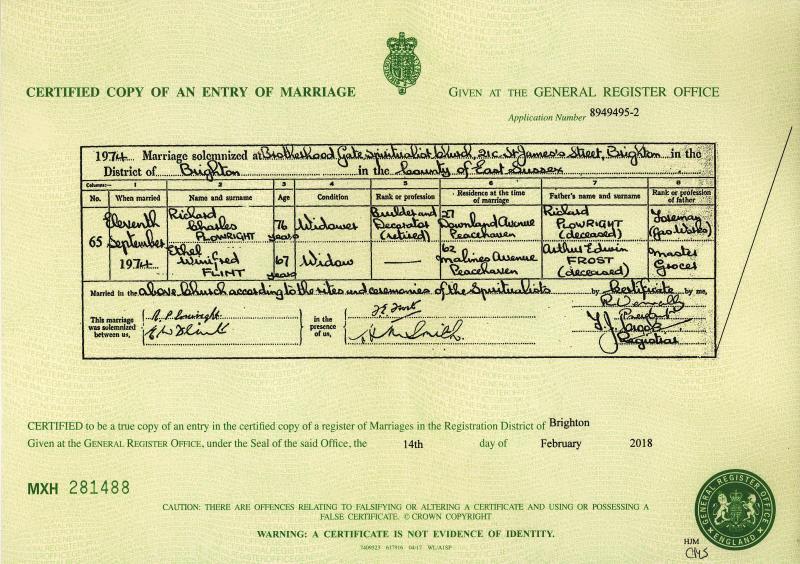 CERTIFIED COPY OF AN ENTRY OF MARRIAGE
GIVEN AT THE GENERAL REGISTER OFFICE
Application Number 8949495-2
1974. Marriage solemnized at Brotherhood Gate Spiritualist Church, 21c, St James's Street, Brighton in the
District of Brighton in the County of East Sussex
Columns:— 1 2 3 4 5 6 7 8
No. When married Name and surname Age Condition Rank or profession Residence at the time of marriage Father's name and surname Rank or profession of father
65 Eleventh September 1974 Richard Charles PLOWRIGHT 76 years Widower Builder and Decorator (retired) 27 Downland Avenue Peacehaven Richard PLOWRIGHT (deceased) Foreman (Gas Works)
Ethel Winifred FLINT 67 years Widow —— 62 Malines Avenue Peacehaven Arthur Edwin FROST (deceased) Master Grocer
Married in the above Church according to the rites and ceremonies of the Spiritualists by certificate by me,
This marriage was solemnized between us, in the presence of us,
R.C. Plowright
E W Flint
Smith.
Registrar
CERTIFIED to be a true copy of an entry in the certified copy of a register of Marriages in the Registration District of Brighton
Given at the GENERAL REGISTER OFFICE, under the Seal of the said Office, the 14th day of February 2018
MXH 281488
CAUTION: THERE ARE OFFENCES RELATING TO FALSIFYING OR ALTERING A CERTIFICATE AND USING OR POSSESSING A
FALSE CERTIFICATE. © CROWN COPYRIGHT
WARNING: A CERTIFICATE IS NOT EVIDENCE OF IDENTITY.
GENERAL REGISTER OFFICE
ENGLAND
HJM